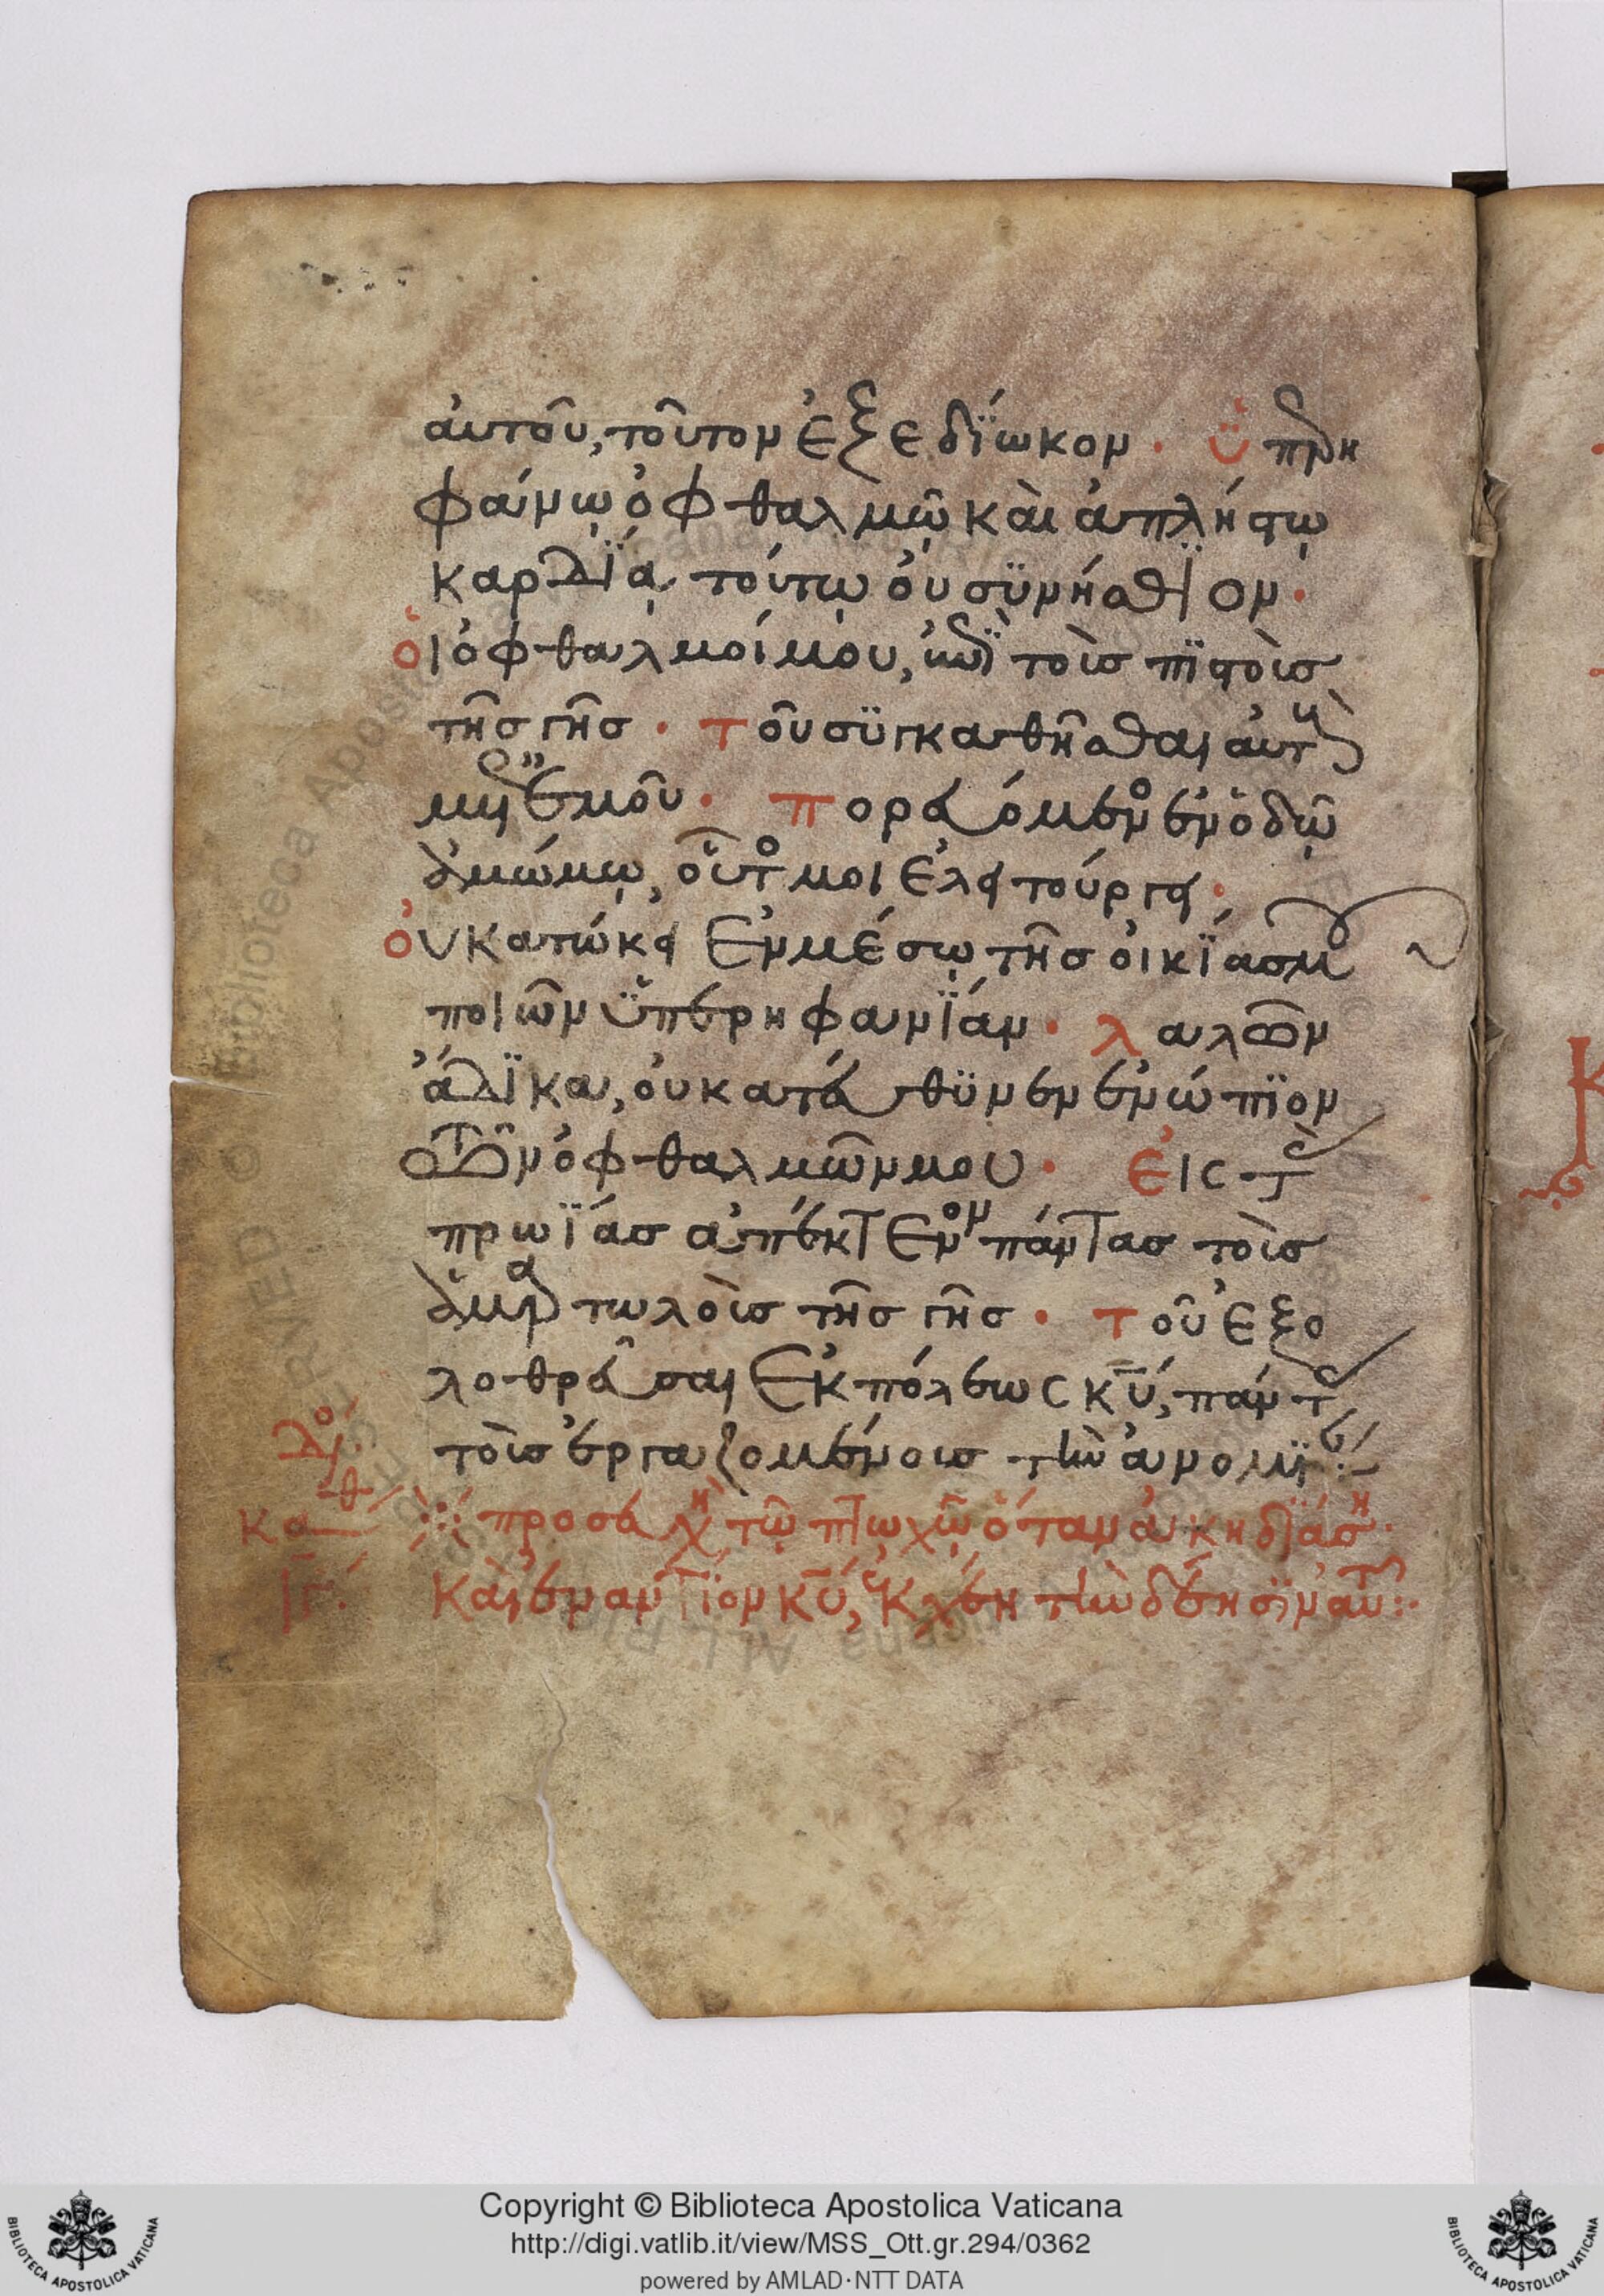 αὐτοῦ, τοῦτον ἐξεδΐωκον · ὑπρη
φάνω ὀφθαλμῶ καὶ ἀπλήστω
καρδΐα, τούτω οὐ συνήσθϊον ·
οἱ ὀφθαλμοί μου, ἐπὶ τοὺς πϊστοὺς
τῆς γῆς · τοῦ συγκαθῆσθαι αὐτοὺς
μετ ἐμοῦ · πορευόμενος ἐν ὁδῶ
ἀμώμω, οὗτος μοι ἐλειτούργει ·
οὐ κατώκει ἐν μέσω τῆς οἰκΐας μου
ποιῶν ὑπερηφανΐαν · λαλῶν
ἄδϊκα, οὐ κατεύθυνεν ἐνώπϊον
τῶν ὀφθαλμῶν μου · εἰς τὰς
πρωΐας ἀπέκτεννον πάντας τοὺς
ἁμαρτωλοὺς τῆς γῆς · τοῦ ἐξο
λοθρεῦσαι ἐκ πόλεως κυ, πάντας
τοὺς ἐργαζομένους τὴν ἀνομΐαν :–
ρα
προσευχὴ τῶ πτωχῶ ὅταν ἀκηδϊάση ·
καὶ ἐναντΐον κυ, ἐκχέη τὴν δέησϊν αὐτοῦ :·
Copyright © Biblioteca Apostolica Vaticana
http://digi.vatlib.it/view/MSS_Ott.gr.294/0362
powered by AMLAD·NTT DATA
BIBLIOTECA APOSTOLICA VATICANA
BIBLIOTECA APOSTOLICA VATICANA